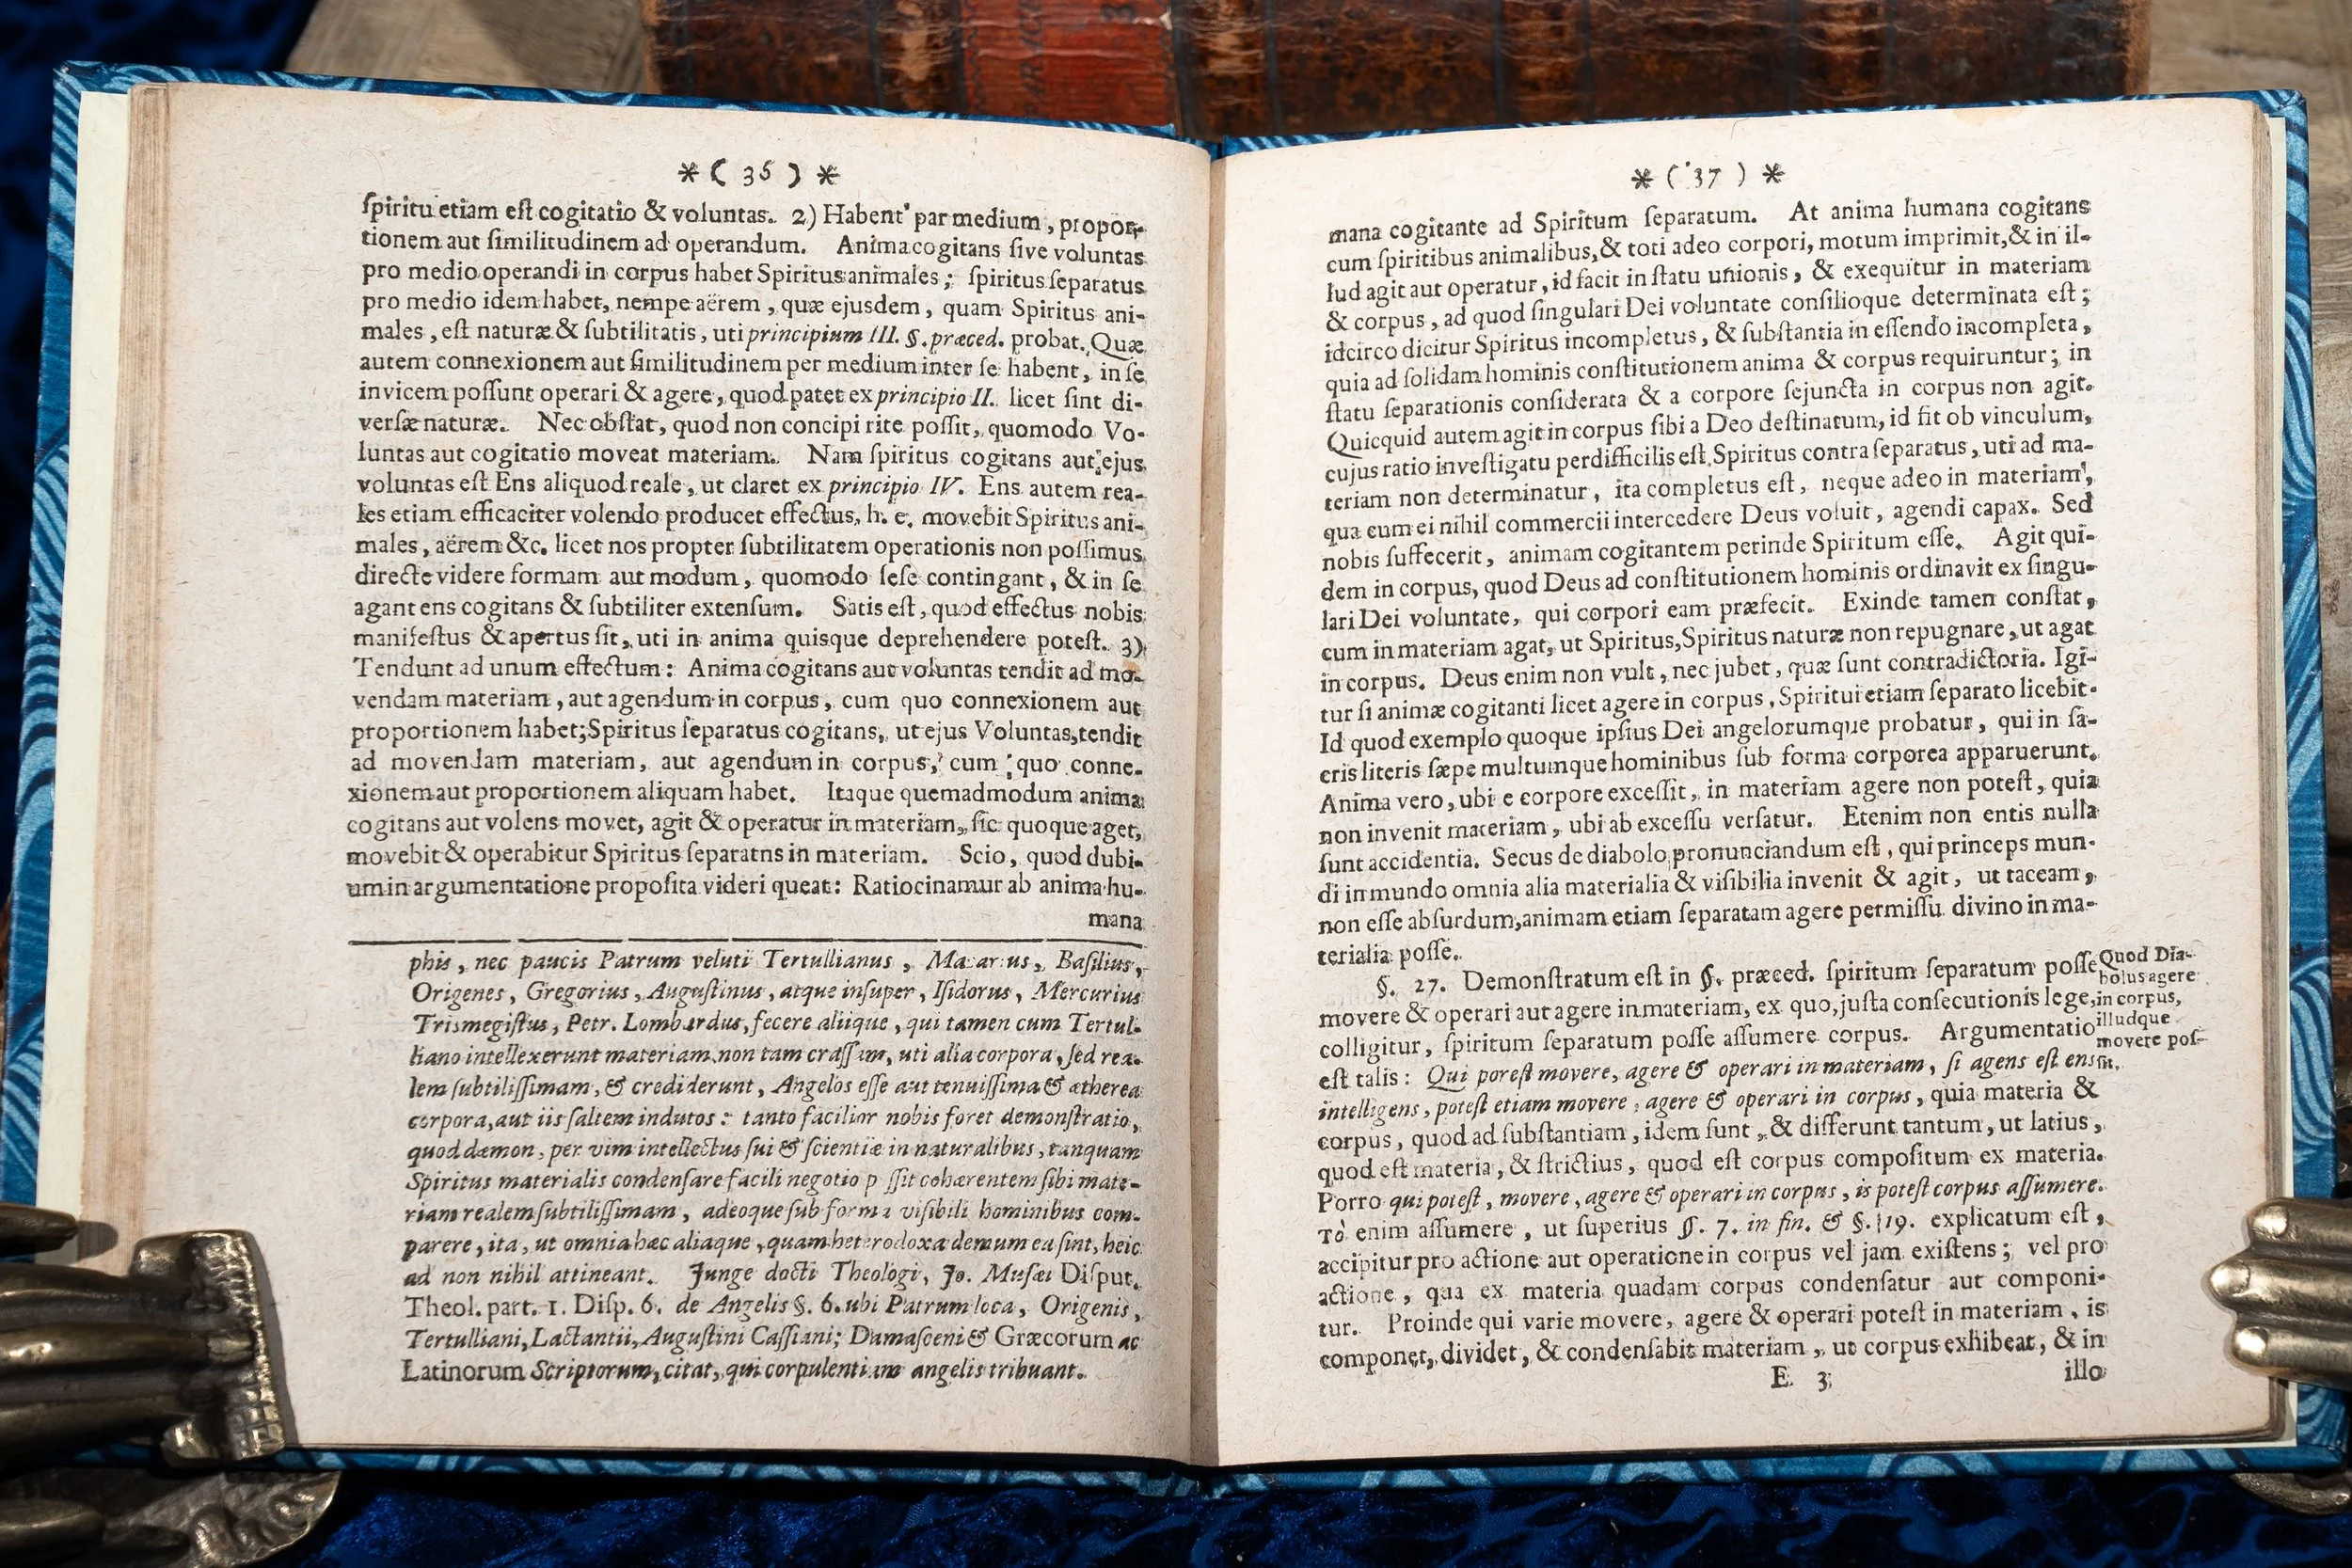 * ( 36 ) *
ſpiritu etiam eſt cogitatio & voluntas. 2) Habent par medium, propor-
tionem aut ſimilitudinem ad operandum. Anima cogitans ſive voluntas
pro medio operandi in corpus habet Spiritus animales; ſpiritus ſeparatus
pro medio idem habet, nempe aërem, quæ ejusdem, quam Spiritus ani-
males, eſt naturæ & ſubtilitatis, uti principium III. §. præced. probat. Quæ
autem connexionem aut ſimilitudinem per medium inter ſe habent, in ſe
invicem poſſunt operari & agere, quod patet ex principio II. licet ſint di-
verſæ naturæ. Nec obſtat, quod non concipi rite poſſit, quomodo Vo-
luntas aut cogitatio moveat materiam. Nam ſpiritus cogitans aut ejus
voluntas eſt Ens aliquod reale, ut claret ex principio IV. Ens autem rea-
les etiam efficaciter volendo producet effectus, h. e. movebit Spiritus ani-
males, aërem &c. licet nos propter ſubtilitatem operationis non poſſimus
directe videre formam aut modum, quomodo ſeſe contingant, & in ſe
agant ens cogitans & ſubtiliter extenſum. Satis eſt, quod effectus nobis
manifeſtus & apertus ſit, uti in anima quisque deprehendere poteſt. 3)
Tendunt ad unum effectum: Anima cogitans aut voluntas tendit ad mo-
vendam materiam, aut agendum in corpus, cum quo connexionem aut
proportionem habet; Spiritus ſeparatus cogitans, ut ejus Voluntas, tendit
ad movendam materiam, aut agendum in corpus, cum quo conne-
xionem aut proportionem aliquam habet. Itaque quemadmodum anima
cogitans aut volens movet, agit & operatur in materiam, ſic quoque aget,
movebit & operabitur Spiritus ſeparatns in materiam. Scio, quod dubi-
um in argumentatione propoſita videri queat: Ratiocinamur ab anima hu-
mana
phis, nec paucis Patrum veluti Tertullianus, Macarius, Baſilius,
Origenes, Gregorius, Auguſtinus, atque inſuper, Iſidorus, Mercurius
Trismegiſtus, Petr. Lombardus, fecere aliique, qui tamen cum Tertul-
liano intellexerunt materiam non tam craſſam, uti alia corpora, ſed rea-
lem ſubtiliſſimam, & crediderunt, Angelos eſſe aut tenuiſſima & ætherea
corpora, aut iis ſaltem indutos: tanto facilior nobis foret demonſtratio,
quod dæmon, per vim intellectus ſui & ſcientiæ in naturalibus, tanquam
Spiritus materialis condenſare facili negotio poſſit cohærentem ſibi mate-
riam realem ſubtiliſſimam, adeoque ſub forma viſibili hominibus com-
parere, ita, ut omnia hæc aliaque, quam heterodoxa demum ea ſint, heic
ad non nihil attineant. Junge docti Theologi, Jo. Muſæi Diſput.
Theol. part. 1. Diſp. 6. de Angelis §. 6. ubi Patrum loca, Origenis,
Tertulliani, Lactantii, Auguſtini Caſſiani; Damaſceni & Græcorum ac
Latinorum Scriptorum, citat, qui corpulentiam angelis tribuant.
* ( 37 ) *
mana cogitante ad Spiritum ſeparatum. At anima humana cogitans
cum ſpiritibus animalibus, & toti adeo corpori, motum imprimit, & in il-
lud agit aut operatur, id facit in ſtatu unionis, & exequitur in materiam
& corpus, ad quod ſingulari Dei voluntate conſilioque determinata eſt;
idcirco dicitur Spiritus incompletus, & ſubſtantia in eſſendo incompleta,
quia ad ſolidam hominis conſtitutionem anima & corpus requiruntur; in
ſtatu ſeparationis conſiderata & a corpore ſejuncta in corpus non agit.
Quicquid autem agit in corpus ſibi a Deo deſtinatum, id fit ob vinculum,
cujus ratio inveſtigatu perdifficilis eſt. Spiritus contra ſeparatus, uti ad ma-
teriam non determinatur, ita completus eſt, neque adeo in materiam,
qua cum ei nihil commercii intercedere Deus voluit, agendi capax. Sed
nobis ſuffecerit, animam cogitantem perinde Spiritum eſſe. Agit qui-
dem in corpus, quod Deus ad conſtitutionem hominis ordinavit ex ſingu-
lari Dei voluntate, qui corpori eam præfecit. Exinde tamen conſtat,
cum in materiam agat, ut Spiritus, Spiritus naturæ non repugnare, ut agat
in corpus. Deus enim non vult, nec jubet, quæ ſunt contradictoria. Igi-
tur ſi animæ cogitanti licet agere in corpus, Spiritui etiam ſeparato licebit.
Id quod exemplo quoque ipſius Dei angelorumque probatur, qui in ſa-
cris literis ſæpe multumque hominibus ſub forma corporea apparuerunt.
Anima vero, ubi e corpore exceſſit, in materiam agere non poteſt, quia
non invenit materiam, ubi ab exceſſu verſatur. Etenim non entis nulla
ſunt accidentia. Secus de diabolo pronunciandum eſt, qui princeps mun-
di in mundo omnia alia materialia & viſibilia invenit & agit, ut taceam,
non eſſe abſurdum, animam etiam ſeparatam agere permiſſu divino in ma-
terialia poſſe.
§. 27. Demonſtratum eſt in §. præced. ſpiritum ſeparatum poſſe
movere & operari aut agere in materiam, ex quo, juſta conſecutionis lege,
colligitur, ſpiritum ſeparatum poſſe aſſumere corpus. Argumentatio
eſt talis: Qui poteſt movere, agere & operari in materiam, ſi agens eſt ens
intelligens, poteſt etiam movere, agere & operari in corpus, quia materia &
corpus, quod ad ſubſtantiam, idem ſunt, & differunt tantum, ut latius,
quod eſt materia, & ſtrictius, quod eſt corpus compoſitum ex materia.
Porro qui poteſt, movere, agere & operari in corpus, is poteſt corpus aſſumere.
Τὸ enim aſſumere, ut ſuperius §. 7. in fin. & §. 19. explicatum eſt,
accipitur pro actione aut operatione in corpus vel jam exiſtens; vel pro
actione, qua ex materia quadam corpus condenſatur aut componi-
tur. Proinde qui varie movere, agere & operari poteſt in materiam, is
componet, dividet, & condenſabit materiam, ut corpus exhibeat, & in
E 3
illo
Quod Dia-
bolus agere
in corpus,
illudque
movere poſ-
ſit.